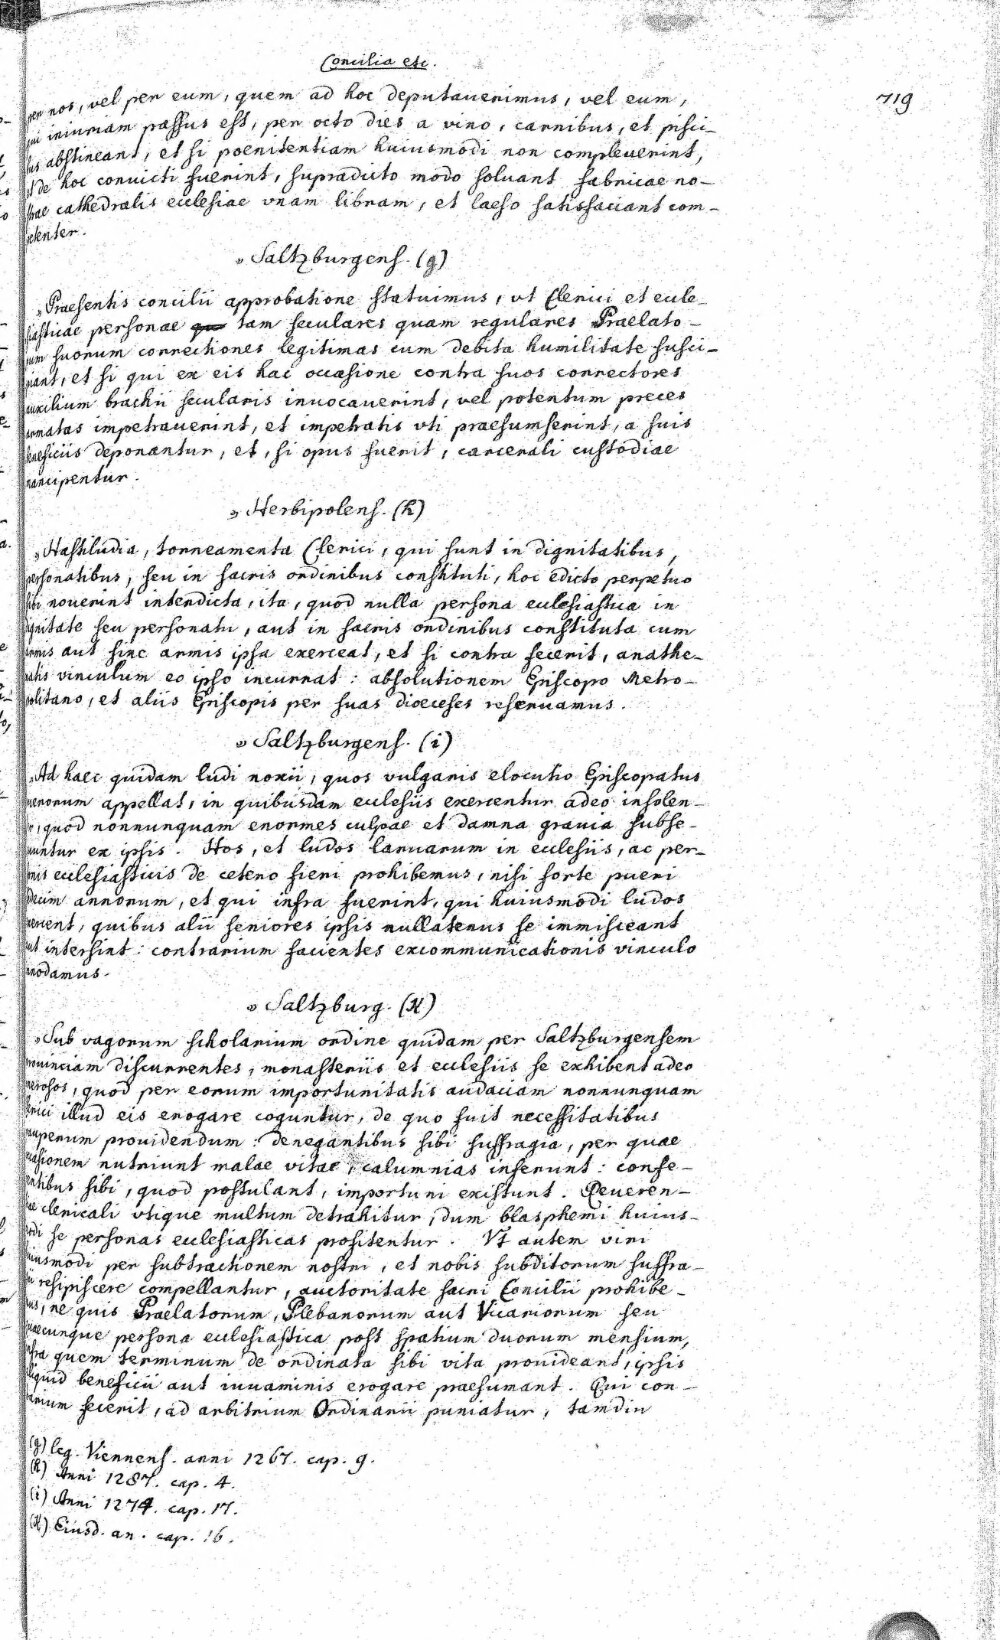 Concilia etc.
719
per nos, vel per eum, quem ad hoc deputauerimus, vel eum,
qui iniuriam passus est, per octo dies a vino, carnibus, et pisci-
bus abstineant, et si poenitentiam huiusmodi non compleuerint,
et de hoc convicti fuerint, supradicto modo soluant fabricae no-
strae cathedralis ecclesiae vnam libram, et laeso satisfaciant com-
petenter.
„ Saltzburgens. (g)
„Praesentis concilii approbatione statuimus, vt Clerici et eccle-
siasticae personae tam seculares quam regulares Praelato-
rum suorum correctiones legitimas cum debita humilitate susci-
piant, et si qui ex eis hac occasione contra suos correctores
auxilium brachii secularis inuocauerint, vel potentum preces
armatas impetrauerint, et impetratis vti praesumserint, a suis
beneficiis deponantur, et, si opus fuerit, carcerali custodiae
mancipentur.
„ Herbipolens. (h)
„Hastiludia, torneamenta Clerici, qui sunt in dignitatibus,
personatibus, seu in sacris ordinibus constituti, hoc edicto perpetuo
sibi nouerint interdicta, ita, quod nulla persona ecclesiastica in
dignitate seu personatu, aut in sacris ordinibus constituta cum
armis aut sine armis ipsa exerceat, et si contra fecerit, anathe-
matis vinculum eo ipso incurrat: absolutionem Episcopo Metro-
politano, et aliis Episcopis per suas dioeceses reseruamus.
„ Saltzburgens. (i)
„Ad haec quidam ludi noxii, quos vulgaris elocutio Episcopatus
puerorum appellat, in quibusdam ecclesiis exercentur adeo insolen-
ter, quod nonnunquam enormes culpae et damna grauia subse-
quuntur ex ipsis. Hos, et ludos laruarum in ecclesiis, ac per-
sonis ecclesiasticis de cetero fieri prohibemus, nisi forte pueri
decim annorum, et qui infra fuerint, qui huiusmodi ludos
exercent, quibus alii seniores ipsis nullatenus se immisceant
aut intersint: contrarium facientes excommunicationis vinculo
innodamus.
„ Saltzburg. (K)
„Sub vagorum scholarium ordine quidam per Saltzburgensem
prouinciam discurrentes, monasteriis et ecclesiis se exhibent adeo
onerosos, quod per eorum importunitatis audaciam nonnunquam
clerici illud eis erogare coguntur, de quo fuit necessitatibus
pauperum prouidendum: denegantibus sibi suffragia, per quae
occasionem nutriunt malae vitae, calumnias inferunt: confe-
rentibus sibi, quod postulant, importuni existunt. Reueren-
tiae clericali vtique multum detrahitur, dum blasphemi huius-
modi se personas ecclesiasticas profitentur. Vt autem viri
huiusmodi per subtractionem nostri, et nobis subditorum suffra-
gii resipiscere compellantur, auctoritate sacri Concilii prohibe-
mus, ne quis Praelatorum, Plebanorum aut Vicariorum seu
quaecunque persona ecclesiastica post spatium duorum mensium,
infra quem terminum de ordinata sibi vita prouideant, ipsis
aliquid beneficii aut iuuaminis erogare praesumant. Qui con-
trarium fecerit, ad arbitrium Ordinarii puniatur, tamdiu
(g) leg. Viennens. anni 1267. cap. 9.
(h) Anni 1287. cap. 4.
(i) Anni 1274. cap. 17.
(K) Eiusd. an. cap. 16.